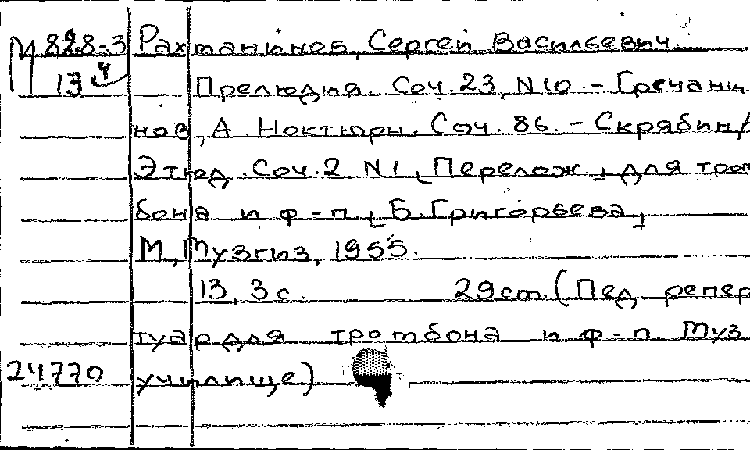 М 828-3 Рахманинов, Сергей Васильевич.
13 4 Прелюдия. Соч. 23, N10 - Гречани
нов, А. Ноктюрн. Соч. 86. - Скрябин,
Этюд. Соч. 2 N1, Перелож. для тром
бона и ф-п. Б. Григорьева,
М., Музгиз, 1955.
13, 3 с. 29 cm. (Пед. репер
туар для тромбона и ф-п Муз
24770 училище)